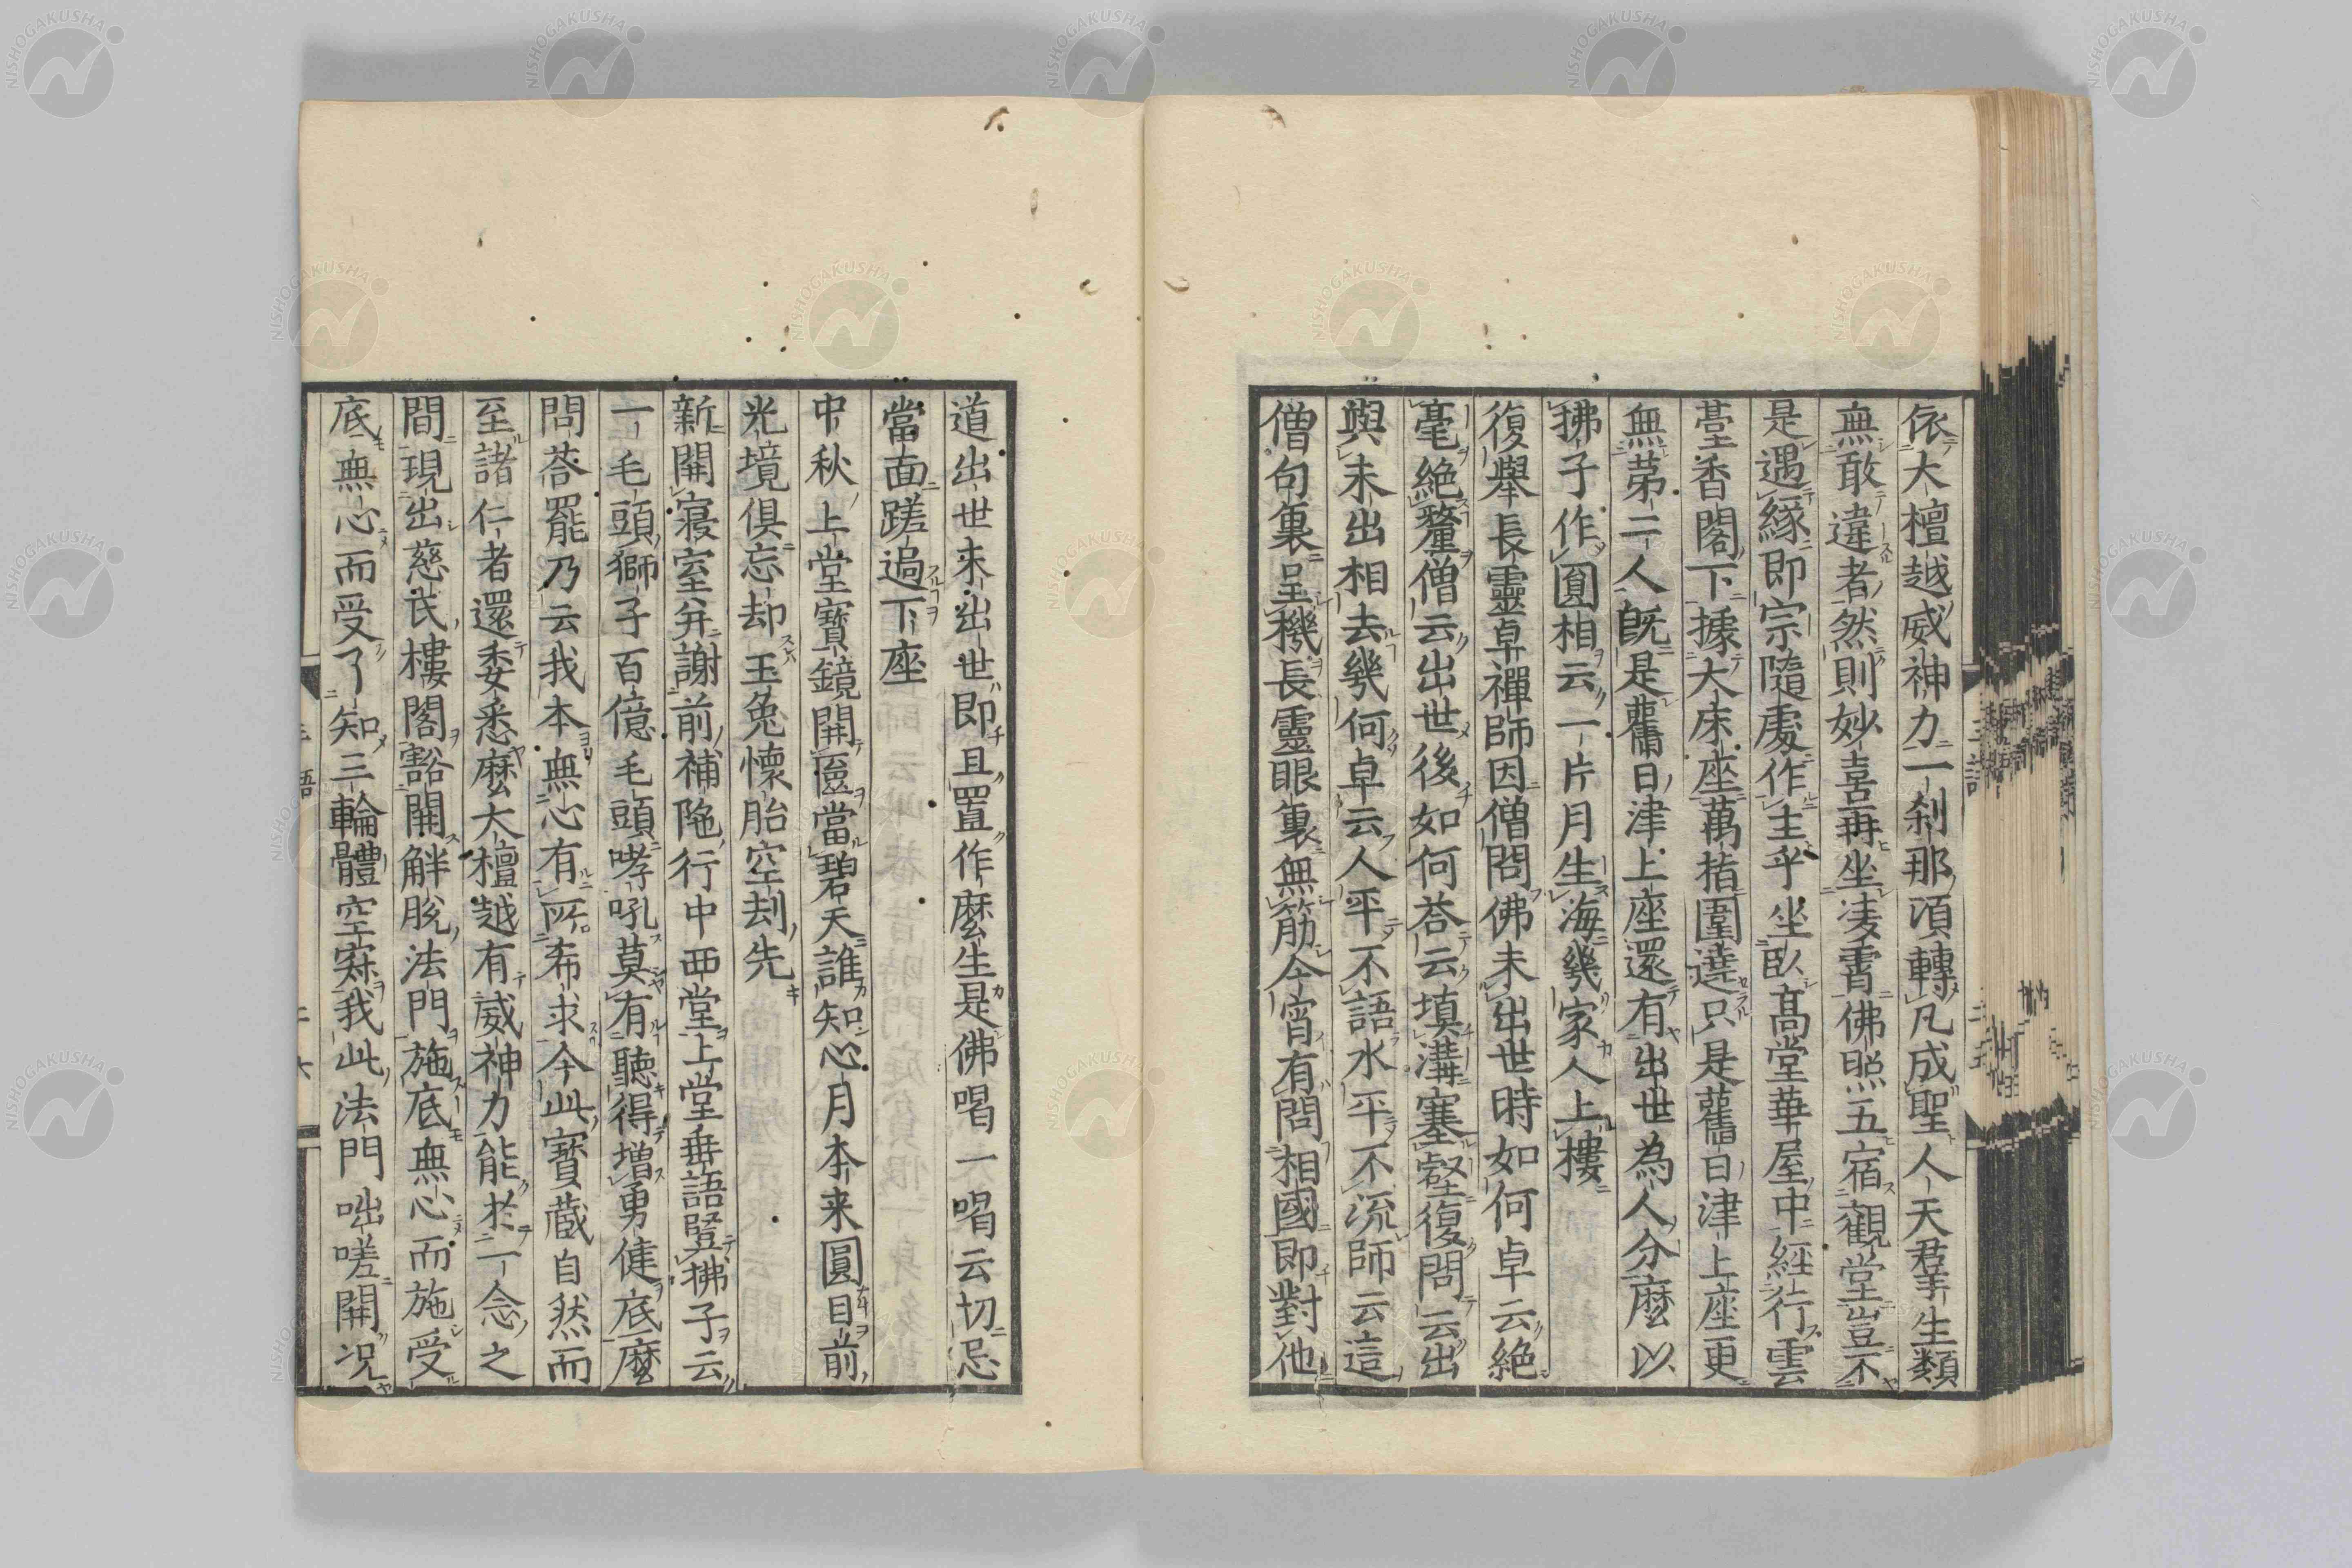 依大檀越威神力一刹那頃轉凡成聖人天羣生類
無敢違者然則妙喜再坐凌霄佛照五宿觀堂豈不
是遇緣即宗隨處作主乎坐臥高堂華屋中經行雲
臺香閣下據大床座萬指圍遶只是舊日津上座更
無第二人既是舊日津上座還有出世為人分麼以
拂子作圓相云一片月生海幾家人上樓
復舉長靈卓禪師因僧問佛未出世時如何卓云絶
毫絶釐僧云出世後如何荅云填溝塞壑復問云出
與未出相去幾何卓云人平不語水平不流師云這
僧句裏呈機長靈眼裏無筋今宵有問相國即對他
道出世未出世即且置作麼生是佛喝一喝云切忌
當面蹉過下座
中秋上堂寶鏡開匳當碧天誰知心月本来圓目前
光境俱忘却玉兔懷胎空刦先
新開寢室并謝前補陁行中西堂上堂垂語竪拂子云
一毛頭獅子百億毛頭哮吼莫有聽得增勇健底麼
問荅罷乃云我本無心有所希求今此寶藏自然而
至諸仁者還委悉麼大檀越有威神力能於一念之
間現出慈氏樓閣豁開解脫法門施底無心而施受
底無心而受了知三輪體空寂我此法門咄嗟開况
NISHOGAKUSHA